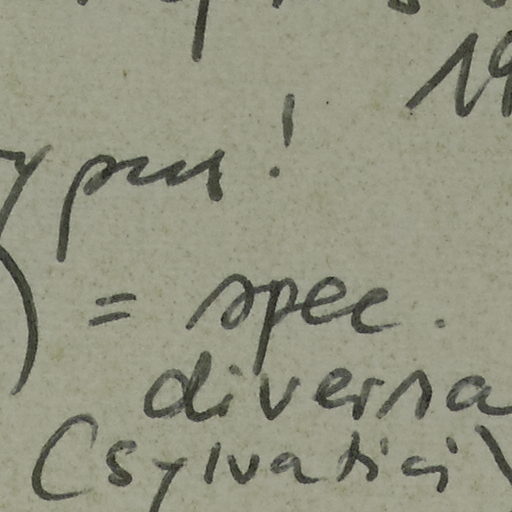 19
ypus!
) = spec.
diversa
(sylvatici)